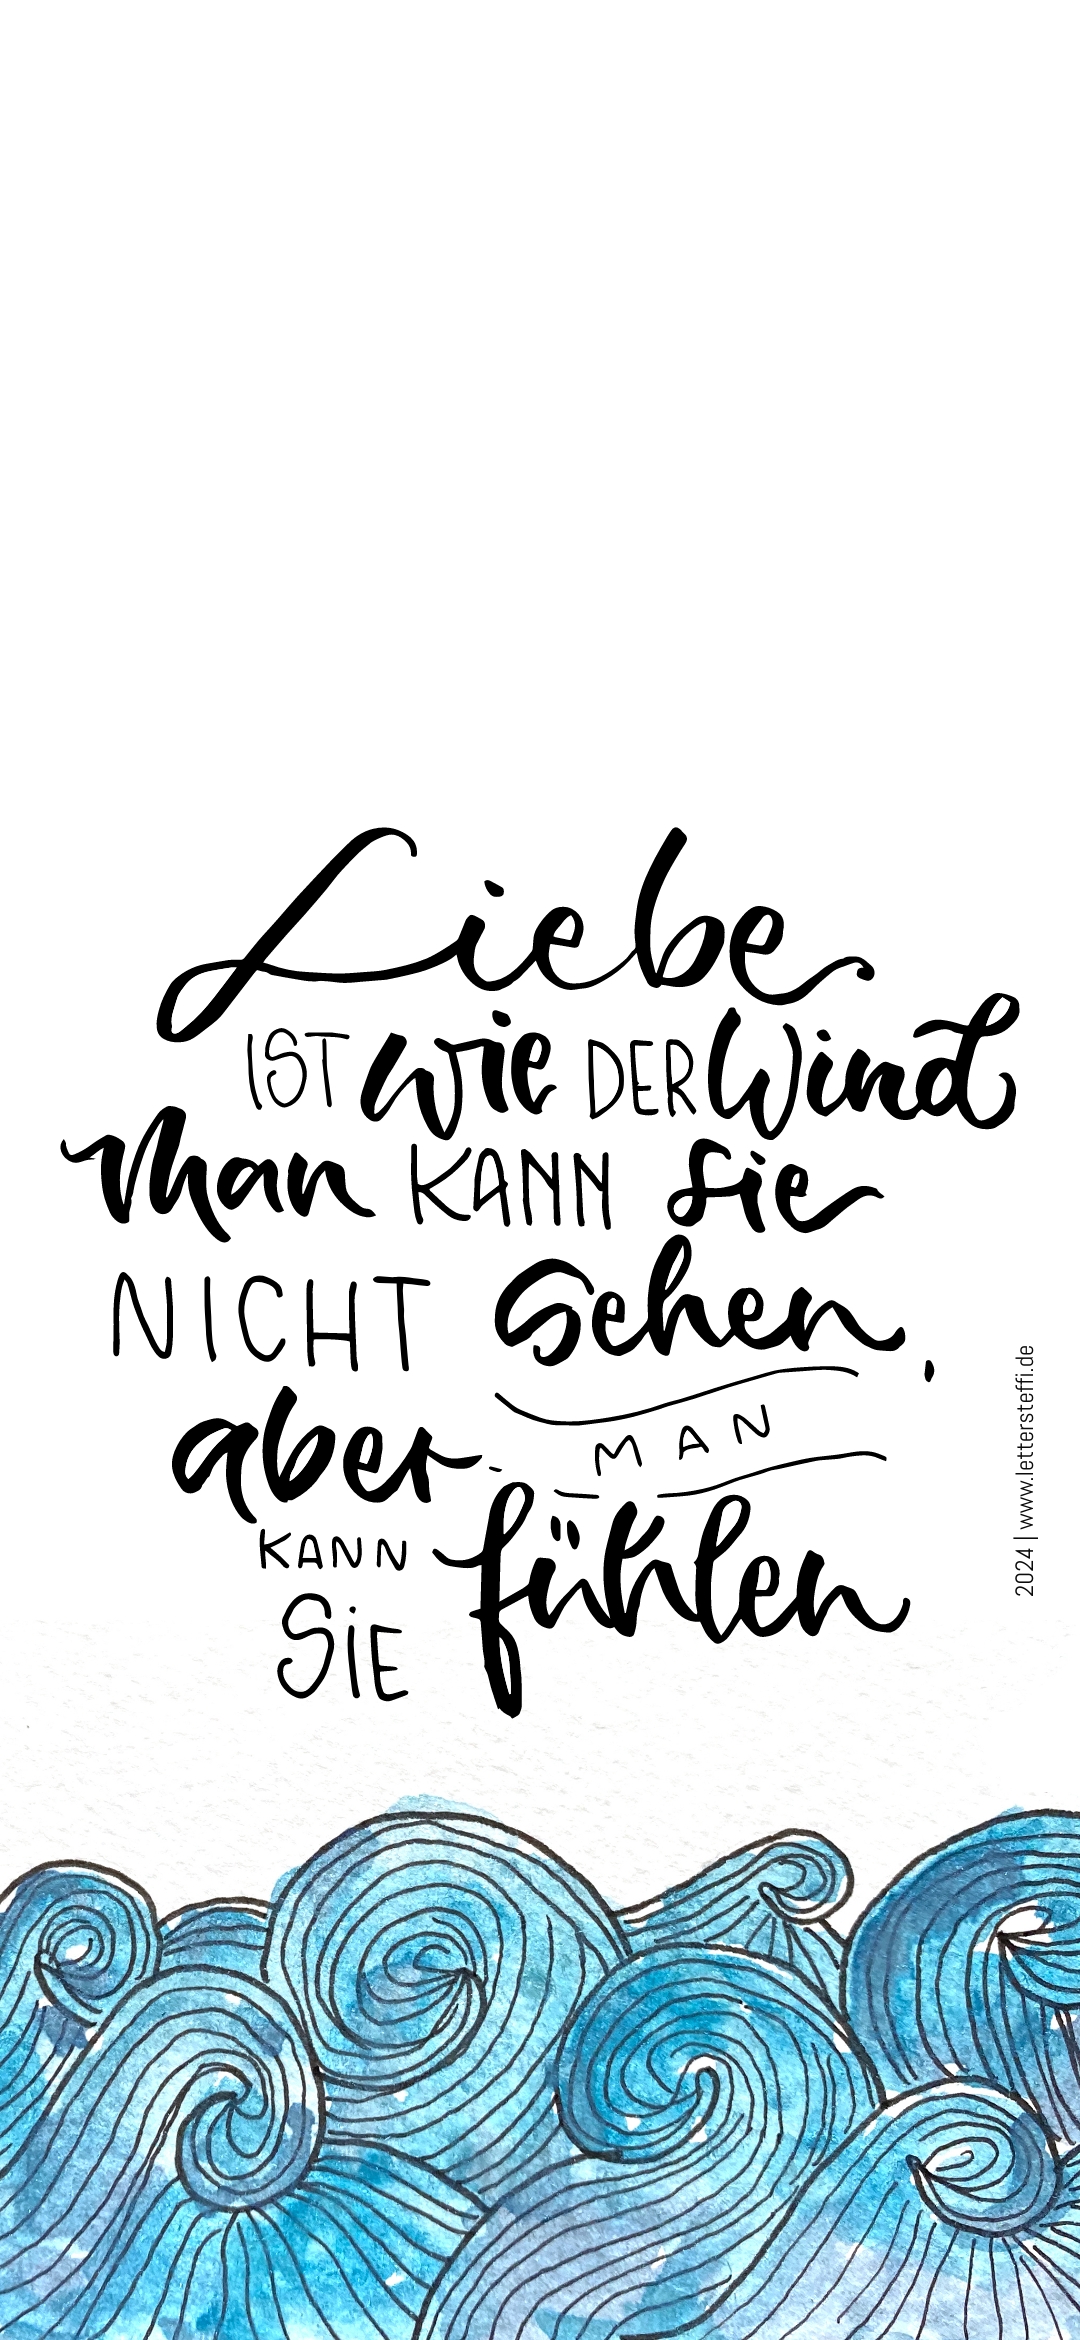 Liebe
IST wie DER Wind
Man KANN sie
NICHT sehen,
aber MAN
KANN fühlen
SiE
2024 | www.lettersteffi.de